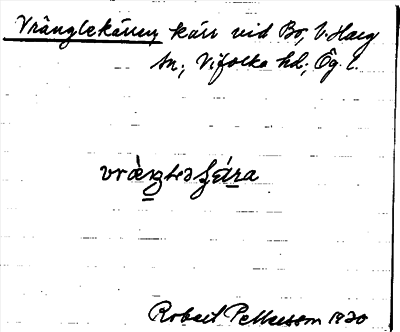 Vränglekärren kärr vid Bo, V. Harg
sn; Vifolka hd; Ög. l.
Robert Pettersson 1920